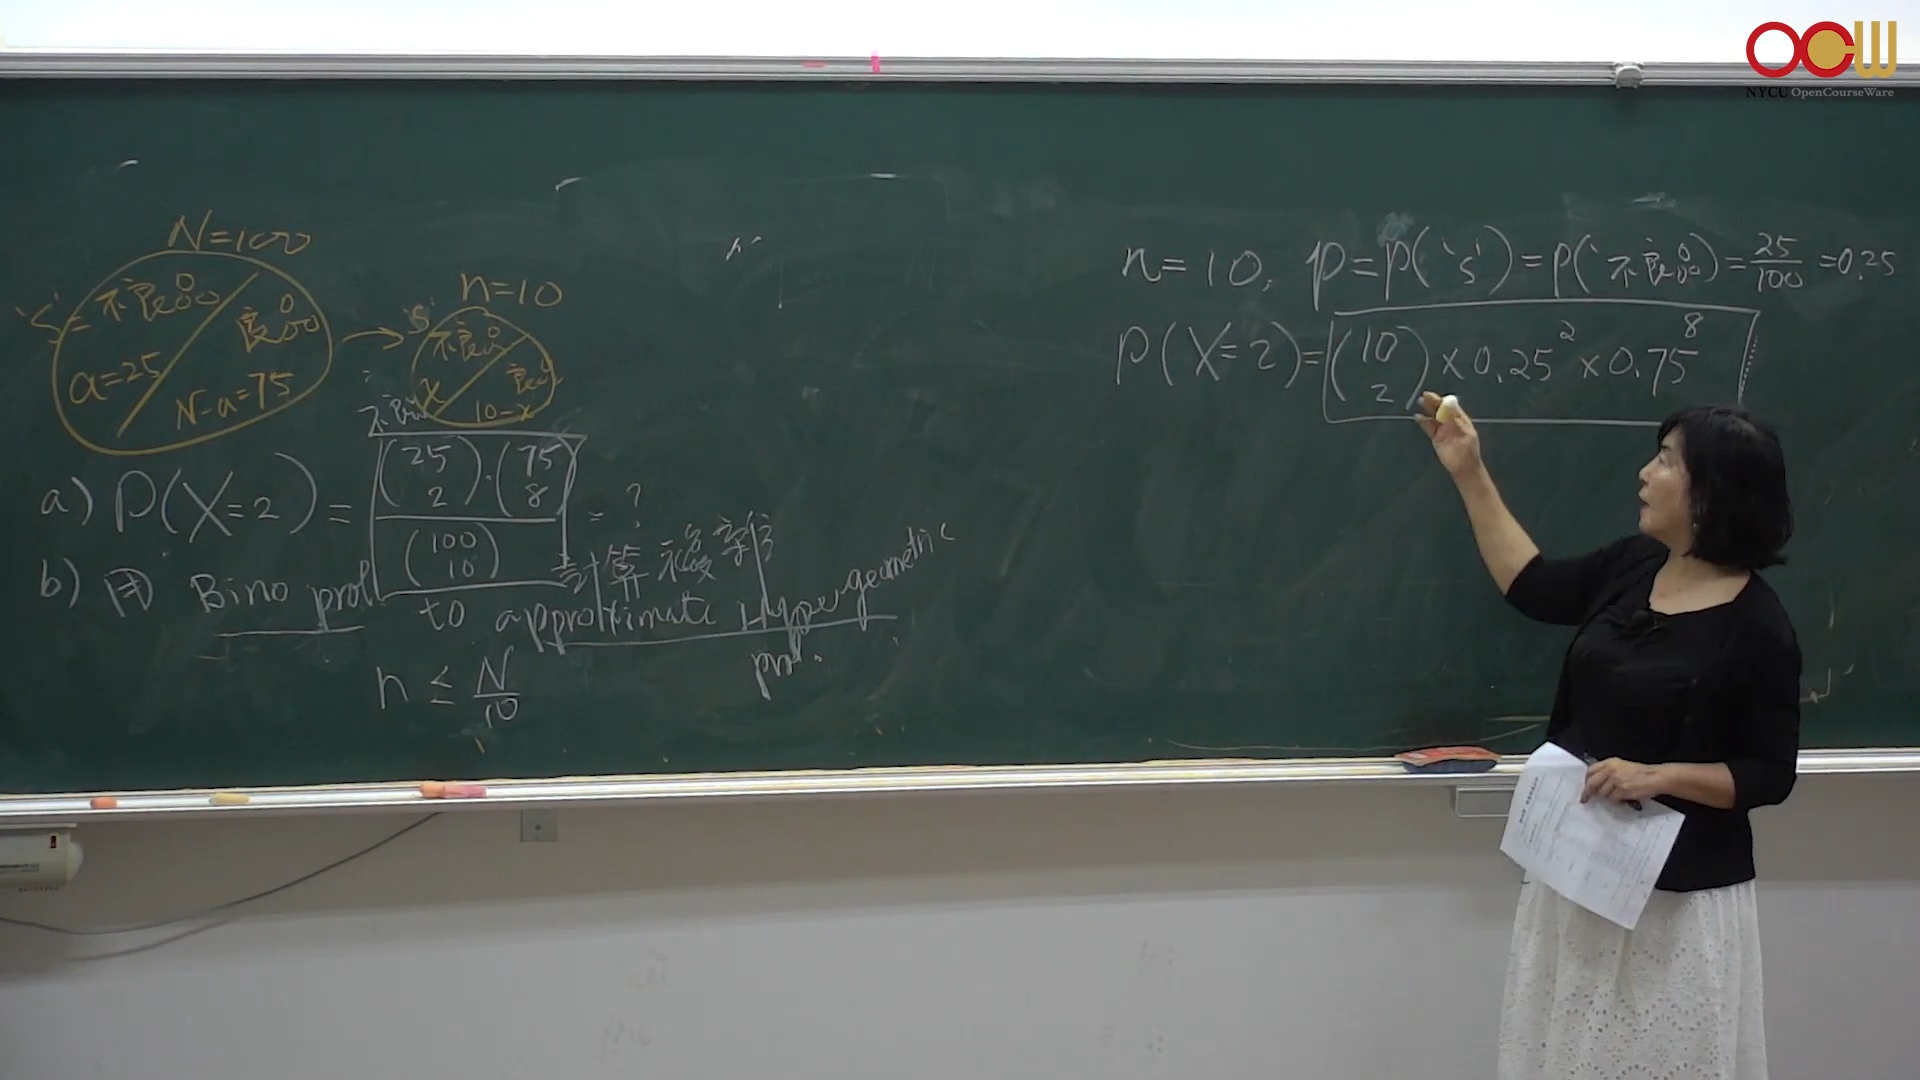 OCW
NYCU OpenCourseWare
N=100
'S'=不良品
良品
a=25
N-a=75
n=10
'S'
不良品
良品
x
10-x
不良品
a) P(X=2) = (25 2)·(75 8) / (100 10) = ?
計算複雜
b) 用 Bino prob. to approximate Hypergeometric prob.
n ≤ N/10
n=10, p=P('S')=P('不良品')=25/100=0.25
P(X=2)=(10 2)×0.25²×0.75⁸